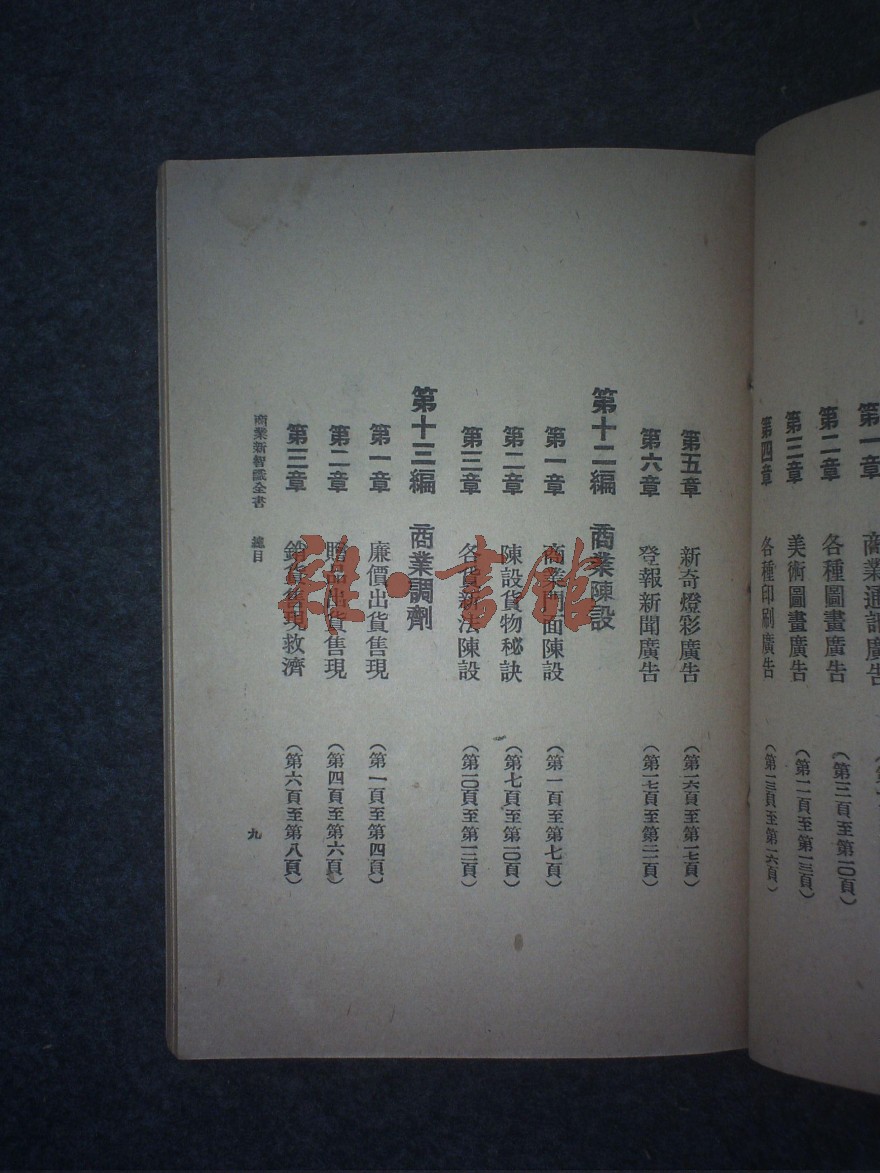 第一章　商業通訊廣告
第二章　各種圖畫廣告　（第三頁至第一〇頁）
第三章　美術圖畫廣告　（第一一頁至第一三頁）
第四章　各種印刷廣告　（第一三頁至第一六頁）
第五章　新奇燈彩廣告　（第一六頁至第一七頁）
第六章　登報新聞廣告　（第一七頁至第二一頁）
第十二編　商業陳設
第一章　商業門面陳設　（第一頁至第七頁）
第二章　陳設貨物秘訣　（第七頁至第一〇頁）
第三章　各貨新法陳設　（第一〇頁至第一二頁）
第十三編　商業調劑
第一章　廉價出貨售現　（第一頁至第四頁）
第二章　贈品出貨售現　（第四頁至第六頁）
第三章　銷貨售現救濟　（第六頁至第八頁）
商業新智識全書　總目
九
雜·書館